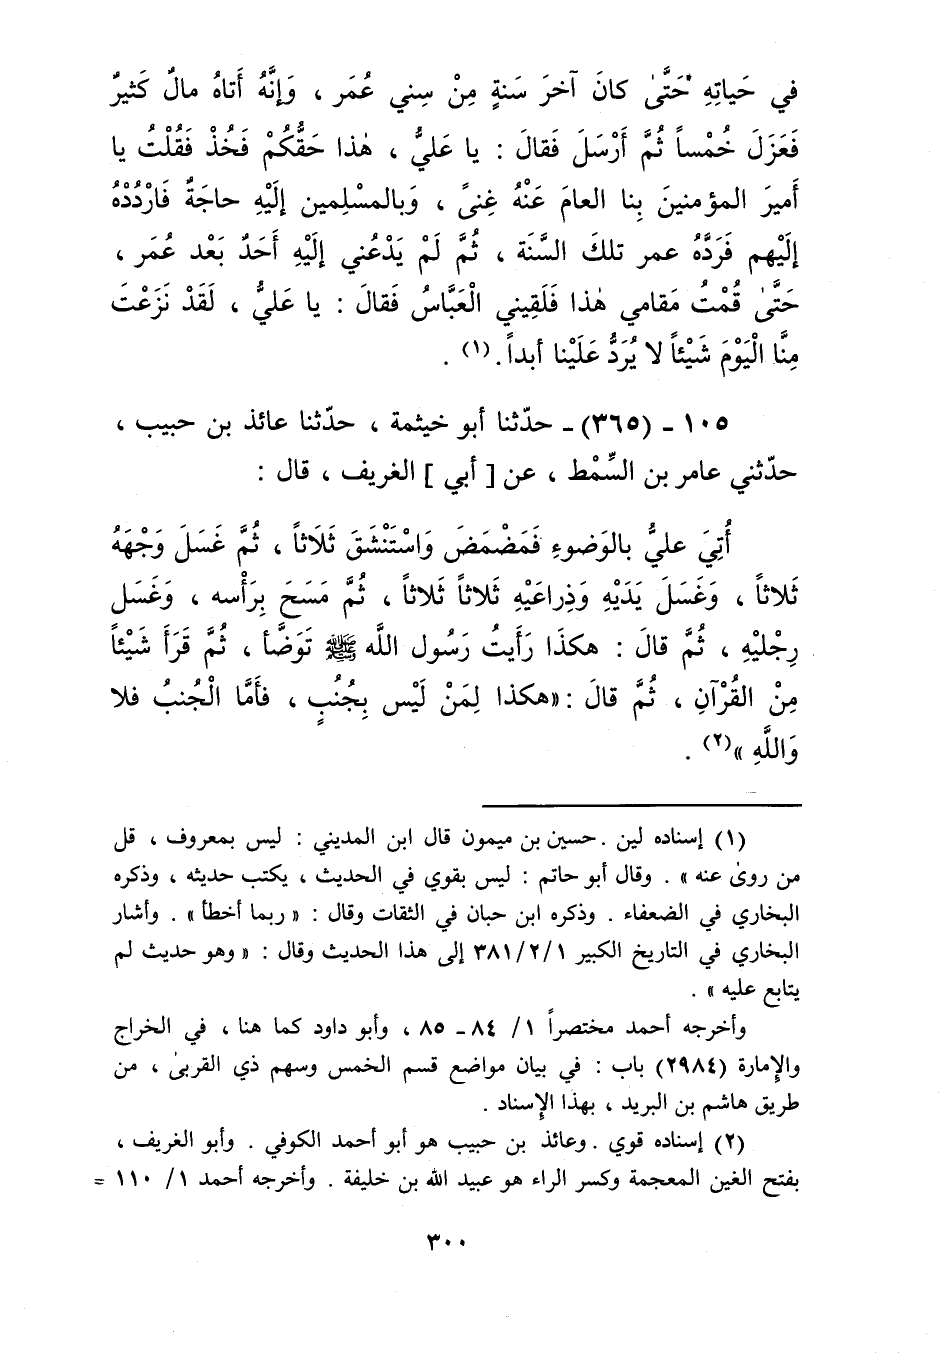 في حَياتِهِ حَتَّىٰ كانَ آخرَ سَنةٍ مِنْ سِني عُمَر ، وَإنَّهُ أَتاهُ مالٌ كَثيرٌ
فَعَزَلَ خُمْساً ثُمَّ أَرْسَلَ فَقالَ : يا عَليُّ ، هٰذا حَقُّكُمْ فَخُذْ فَقُلْتُ يا
أَميرَ المؤمنينَ بِنا العامَ عَنْهُ غِنىً ، وَبالمسْلِمين إلَيْهِ حاجَةٌ فَارْدُدْهُ
إلَيْهم فَرَدَّهُ عمر تلكَ السَّنَة ، ثُمَّ لَمْ يَدْعُني إلَيْهِ أَحَدٌ بَعْد عُمَر ،
حَتَّىٰ قُمْتُ مَقامي هٰذا فَلَقِيني الْعَبَّاسُ فَقالَ : يا عَليُّ ، لَقَدْ نَزَعْتَ
مِنَّا الْيَوْمَ شَيْئاً لا يُرَدُّ عَلَيْنا أبداً.(١) .
١٠٥ - (٣٦٥) - حدّثنا أبو خيثمة ، حدّثنا عائذ بن حبيب ،
حدّثني عامر بن السِّمْط ، عن [ أبي ] الغريف ، قال :
أُتِيَ عليُّ بالوَضوءِ فَمَضْمَضَ وَاسْتَنْشَقَ ثَلَاثاً ، ثُمَّ غَسَلَ وَجْهَهُ
ثَلاثاً ، وَغَسَلَ يَدَيْهِ وَذِراعَيْهِ ثَلاثاً ثَلاثاً ، ثُمَّ مَسَحَ بِرَأْسه ، وَغَسَل
رِجْليْهِ ، ثُمَّ قالَ : هكذَا رَأَيتُ رَسُول اللَّه ﷺ تَوَضَّأ ، ثُمَّ قَرَأَ شَيْئاً
مِنْ القُرْآنِ ، ثُمَّ قالَ : «هكذا لِمَنْ لَيْس بِجُنُبٍ ، فَأَمَّا الْجُنبُ فلا
وَاللَّهِ »(٢) .
(١) إسناده لين . حسين بن ميمون قال ابن المديني : ليس بمعروف ، قل
من روىٰ عنه » . وقال أبو حاتم : ليس بقوي في الحديث ، يكتب حديثه ، وذكره
البخاري في الضعفاء . وذكره ابن حبان في الثقات وقال : « ربما أخطأ » . وأشار
البخاري في التاريخ الكبير ٣٨١/٢/١ إلى هذا الحديث وقال : « وهو حديث لم
يتابع عليه » .
وأخرجه أحمد مختصراً ١/ ٨٤ - ٨٥ ، وأبو داود كما هنا ، في الخراج
والإمارة (٢٩٨٤) باب : في بيان مواضع قسم الخمس وسهم ذي القربىٰ ، من
طريق هاشم بن البريد ، بهذا الإسناد .
(٢) إسناده قوي . وعائذ بن حبيب هو أبو أحمد الكوفي . وأبو الغريف ،
بفتح الغين المعجمة وكسر الراء هو عبيد الله بن خليفة . وأخرجه أحمد ١/ ١١٠ =
٣٠٠